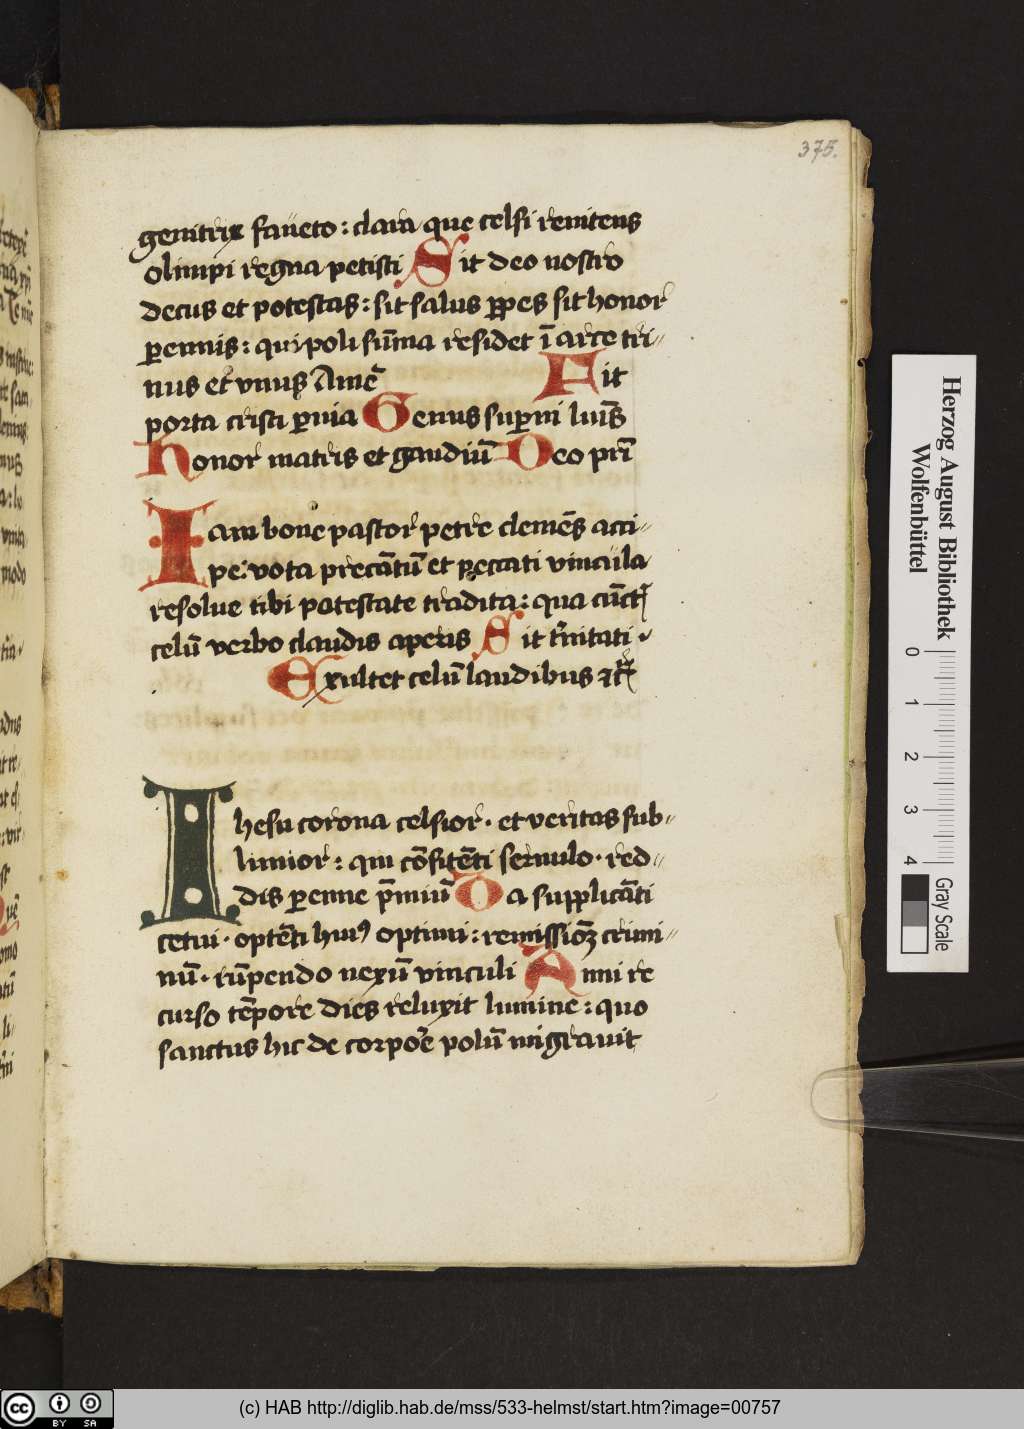 375.
genitrix faueto : clara que celsi renitens
olimpi regna petisti Sit deo nostro
decus et potestas : sit salus ꝑpes sit honor
ꝑennis : qui poli sūma residet ī arce tri-
nus et vnus Amē Fit
porta cristi ꝑuia Genus suꝑni luīs
Honor matris et gaudiū Deo pr̄i
Iam bone pastor petre clemēs acci-
pe : vota precātū et peccati vincula
resolue tibi potestate tradita : qua cūct
celū verbo claudis aperis Sit tˀnitati
Exultet celū laudibus
Ihesu corona celsior · et veritas sub-
limior : qui cōfitēti seruulo · red-
dis ꝑenne p̄miū Da supplicāti
cetui · optēti huiꝰ optimi : remissioꝫ crimi-
nū · rūpendo nexū vinculi Anni re
curso tēpore dies reluxit lumine : quo
sanctus hic de corpoꝛe polū migrauit
Herzog August Bibliothek
Wolfenbüttel
0 1 2 3 4
Gray Scale
cc BY SA
(c) HAB http://diglib.hab.de/mss/533-helmst/start.htm?image=00757